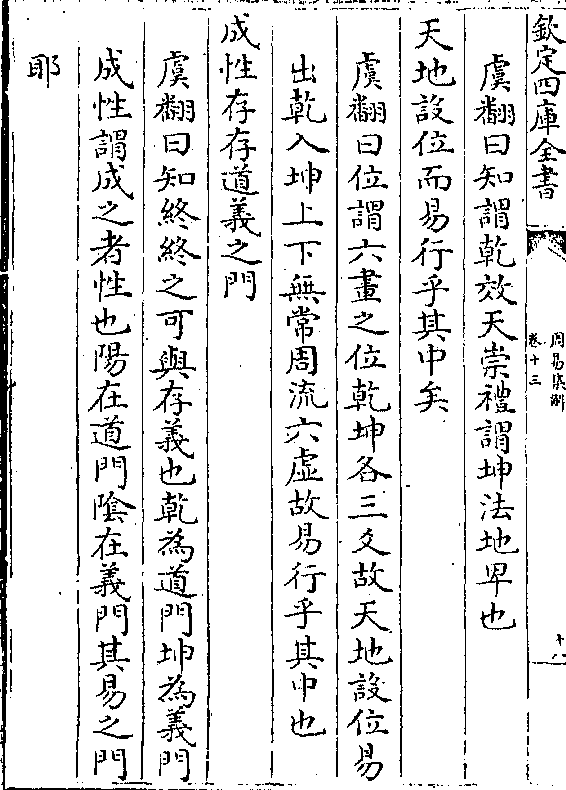 欽定四庫全書
周易集解
卷十三
十八
虞翻曰知謂乾效天崇禮謂坤法地卑也
天地設位而易行乎其中矣
虞翻曰位謂六畫之位乾坤各三爻故天地設位易
出乾入坤上下無常周流六虛故易行乎其中也
成性存存道義之門
虞翻曰知終終之可與存義也乾為道門坤為義門
成性謂成之者性也陽在道門隂在義門其易之門
耶